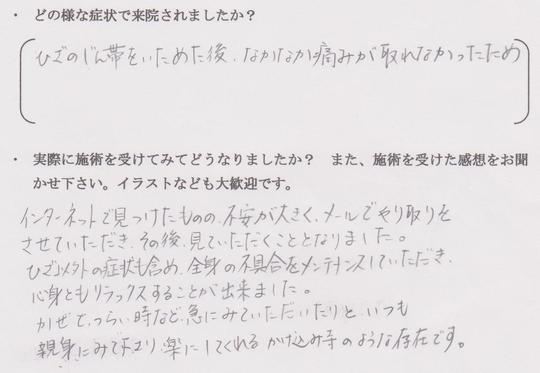 ・ どの様な症状で来院されましたか？
ひざのじん帯をいためた後、なかなか痛みが取れなかったため
・ 実際に施術を受けてみてどうなりましたか？ また、施術を受けた感想をお聞
かせ下さい。イラストなども大歓迎です。
インターネットで見つけたものの、不安が大きく、メールでやり取りを
させていただき、その後、見ていただくこととなりました。
ひざ以外の症状も含め、全身の不具合をメンテナンスしていただき、
心身ともリラックスすることが出来ました。
かぜで、つらい時など、急にみていただいたりと、いつも
親身にみて下さり、楽にしてくれるかけ込み寺のような存在です。